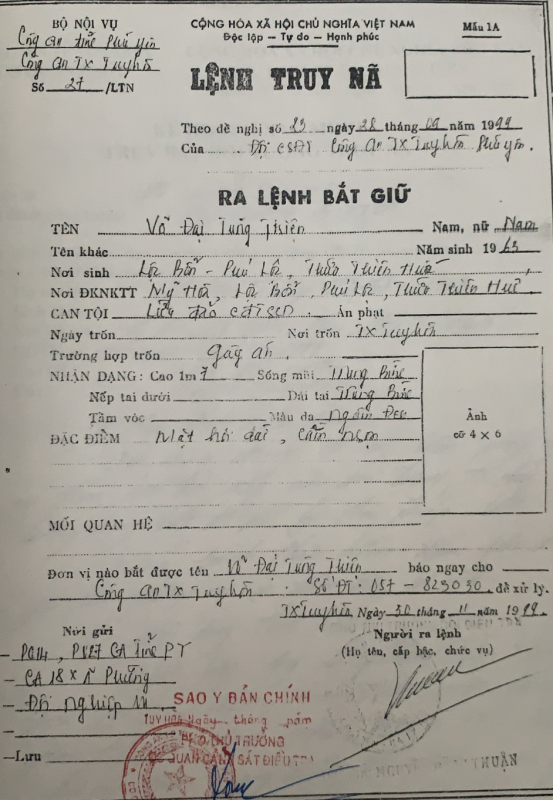 BỘ NỘI VỤ
CỘNG HÒA XÃ HỘI CHỦ NGHĨA VIỆT NAM
Mẫu 1A
Công an tỉnh Phú Yên
Độc lập — Tự do — Hạnh phúc
Công an Tx Tuy Hòa
Số 27 /LTN
LỆNH TRUY NÃ
Theo đề nghị số 23 ngày 28 tháng 09 năm 1999
Của Đội CSĐT Công an TX Tuy Hòa Phú Yên.
RA LỆNH BẮT GIỮ
TÊN Võ Đại Tung Thiện Nam, nữ Nam
Tên khác Năm sinh 1963
Nơi sinh Lộc Bổn - Phú Lộc, Thừa Thiên Huế
Nơi ĐKNKTT Mỹ Hòa, Lộc Bổn, Phú Lộc, Thừa Thiên Huế
CAN TỘI Lừa đảo CĐTSCD Án phạt
Ngày trốn Nơi trốn TX Tuy Hòa
Trường hợp trốn gây án.
NHẬN DẠNG: Cao 1m7 Sống mũi Trung Bình
Nếp tai dưới Dái tai Trung Bình
Tầm vóc Màu da Ngăm Đen
Ảnh
cỡ 4 × 6
ĐẶC ĐIỂM Mặt hơi dài, Cằm nhọn
MỐI QUAN HỆ
Đơn vị nào bắt được tên Võ Đại Tung Thiện báo ngay cho
Công an Tx Tuy Hòa Số ĐT: 057 - 823030. để xử lý.
TX Tuy Hòa Ngày 30 tháng 11 năm 1999.
Nơi gửi
Người ra lệnh
(Họ tên, cấp bậc, chức vụ)
— PC14, CA Tỉnh PY
— CA 18 x Phường
— Đội Nghiệp vụ
SAO Y BẢN CHÍNH
TUY HÒA Ngày tháng năm
PHÓ THỦ TRƯỞNG
CƠ QUAN CẢNH SÁT ĐIỀU TRA
—Lưu
THUẬN